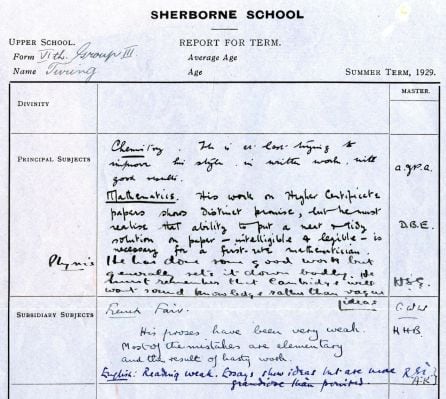 SHERBORNE SCHOOL
UPPER SCHOOL.
REPORT FOR TERM.
Form VIth. Group III.
Average Age
Name Turing
Age
SUMMER TERM, 1929.
MASTER.
DIVINITY
PRINCIPAL SUBJECTS
Chemistry. He is at last trying to
improve his style in written work, with
good results.
Mathematics. His work on Higher Certificate
papers shows distinct promise, but he must
realise that ability to put a neat & tidy
solution on paper - intelligible & legible - is
necessary for a first-rate mathematician.
D.B.E.
Physics He has done some good work but
generally sets it down badly. He
must remember that Cambridge will
want sound knowledge rather than vague
ideas
SUBSIDIARY SUBJECTS
French Fair.
His proses have been very weak.
Most of the mistakes are elementary
and the result of hasty work.
HHB
English: Reading weak. Essays show ideas but are more
grandiose than